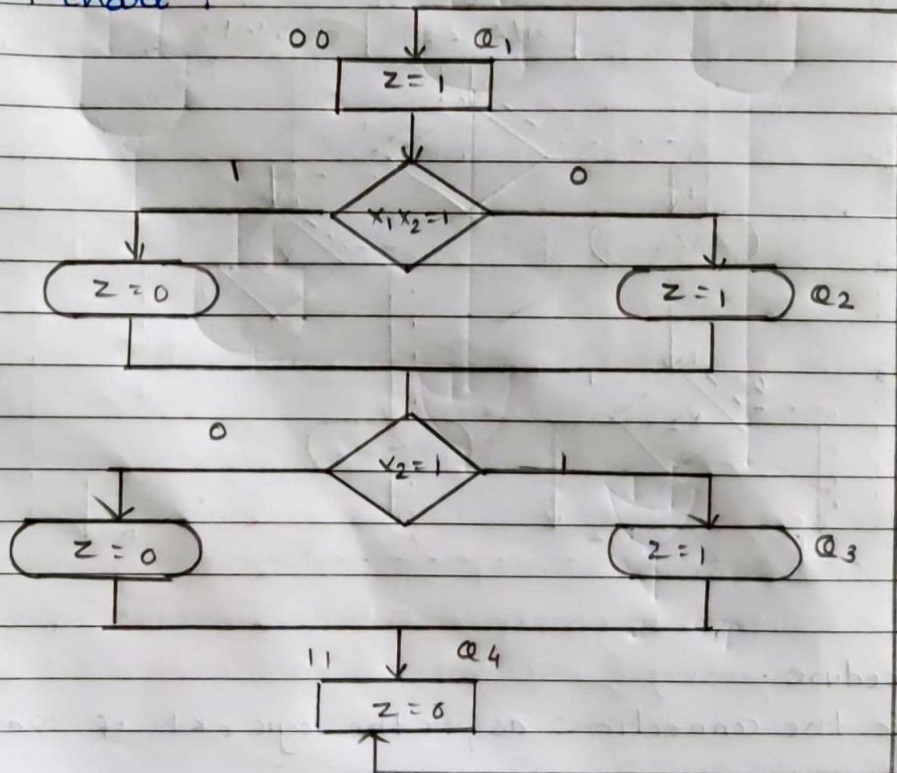 00 Q1
Z = 1
1 0
X1 X2 = 1
Z = 0 Z = 1 Q2
0
X2 = 1 1
Z = 0 Z = 1 Q3
11 Q4
Z = 0